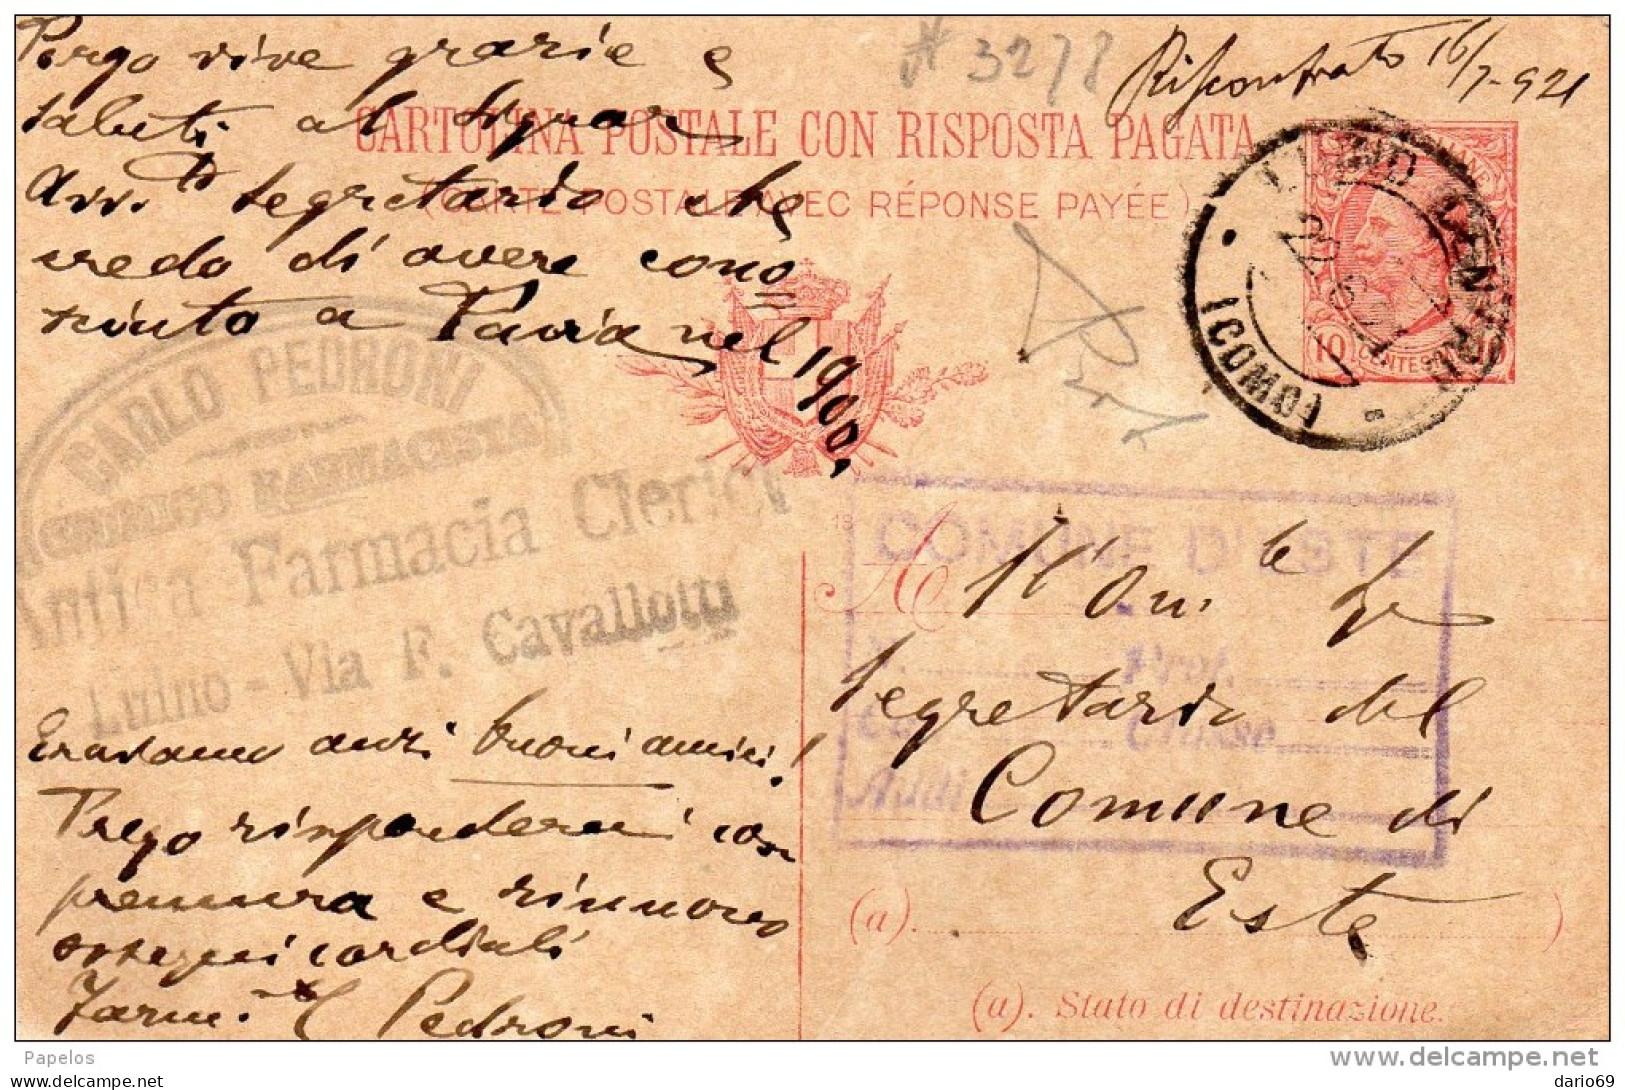 Porgo vive grazie e
saluti al Signor
Avv.to Segretario che
credo di avere cono
sciuto a Pavia nel 1900,
# 3278
Riscontrato 16/7-921
CARTOLINA POSTALE CON RISPOSTA PAGATA
(CARTE POSTALE AVEC RÉPONSE PAYÉE)
LUINO CENTRO
(COMO)
10 CENTESIMI 10
CARLO PEDRONI
CHIMICO FARMACISTA
Antica Farmacia Clerici
Luino - Via F. Cavallotti
Eravamo anzi buoni amici!
Prego rispondermi con
premura e rinnovo
ossequi cordiali
Farm. C Pedroni
COMUNE D'ESTE
Prot.
Classe
A
ll'On.le
Segretario del
Comune di
Este
(a).
)
(a). Stato di destinazione.
Papelos
www.delcampe.net
dario69